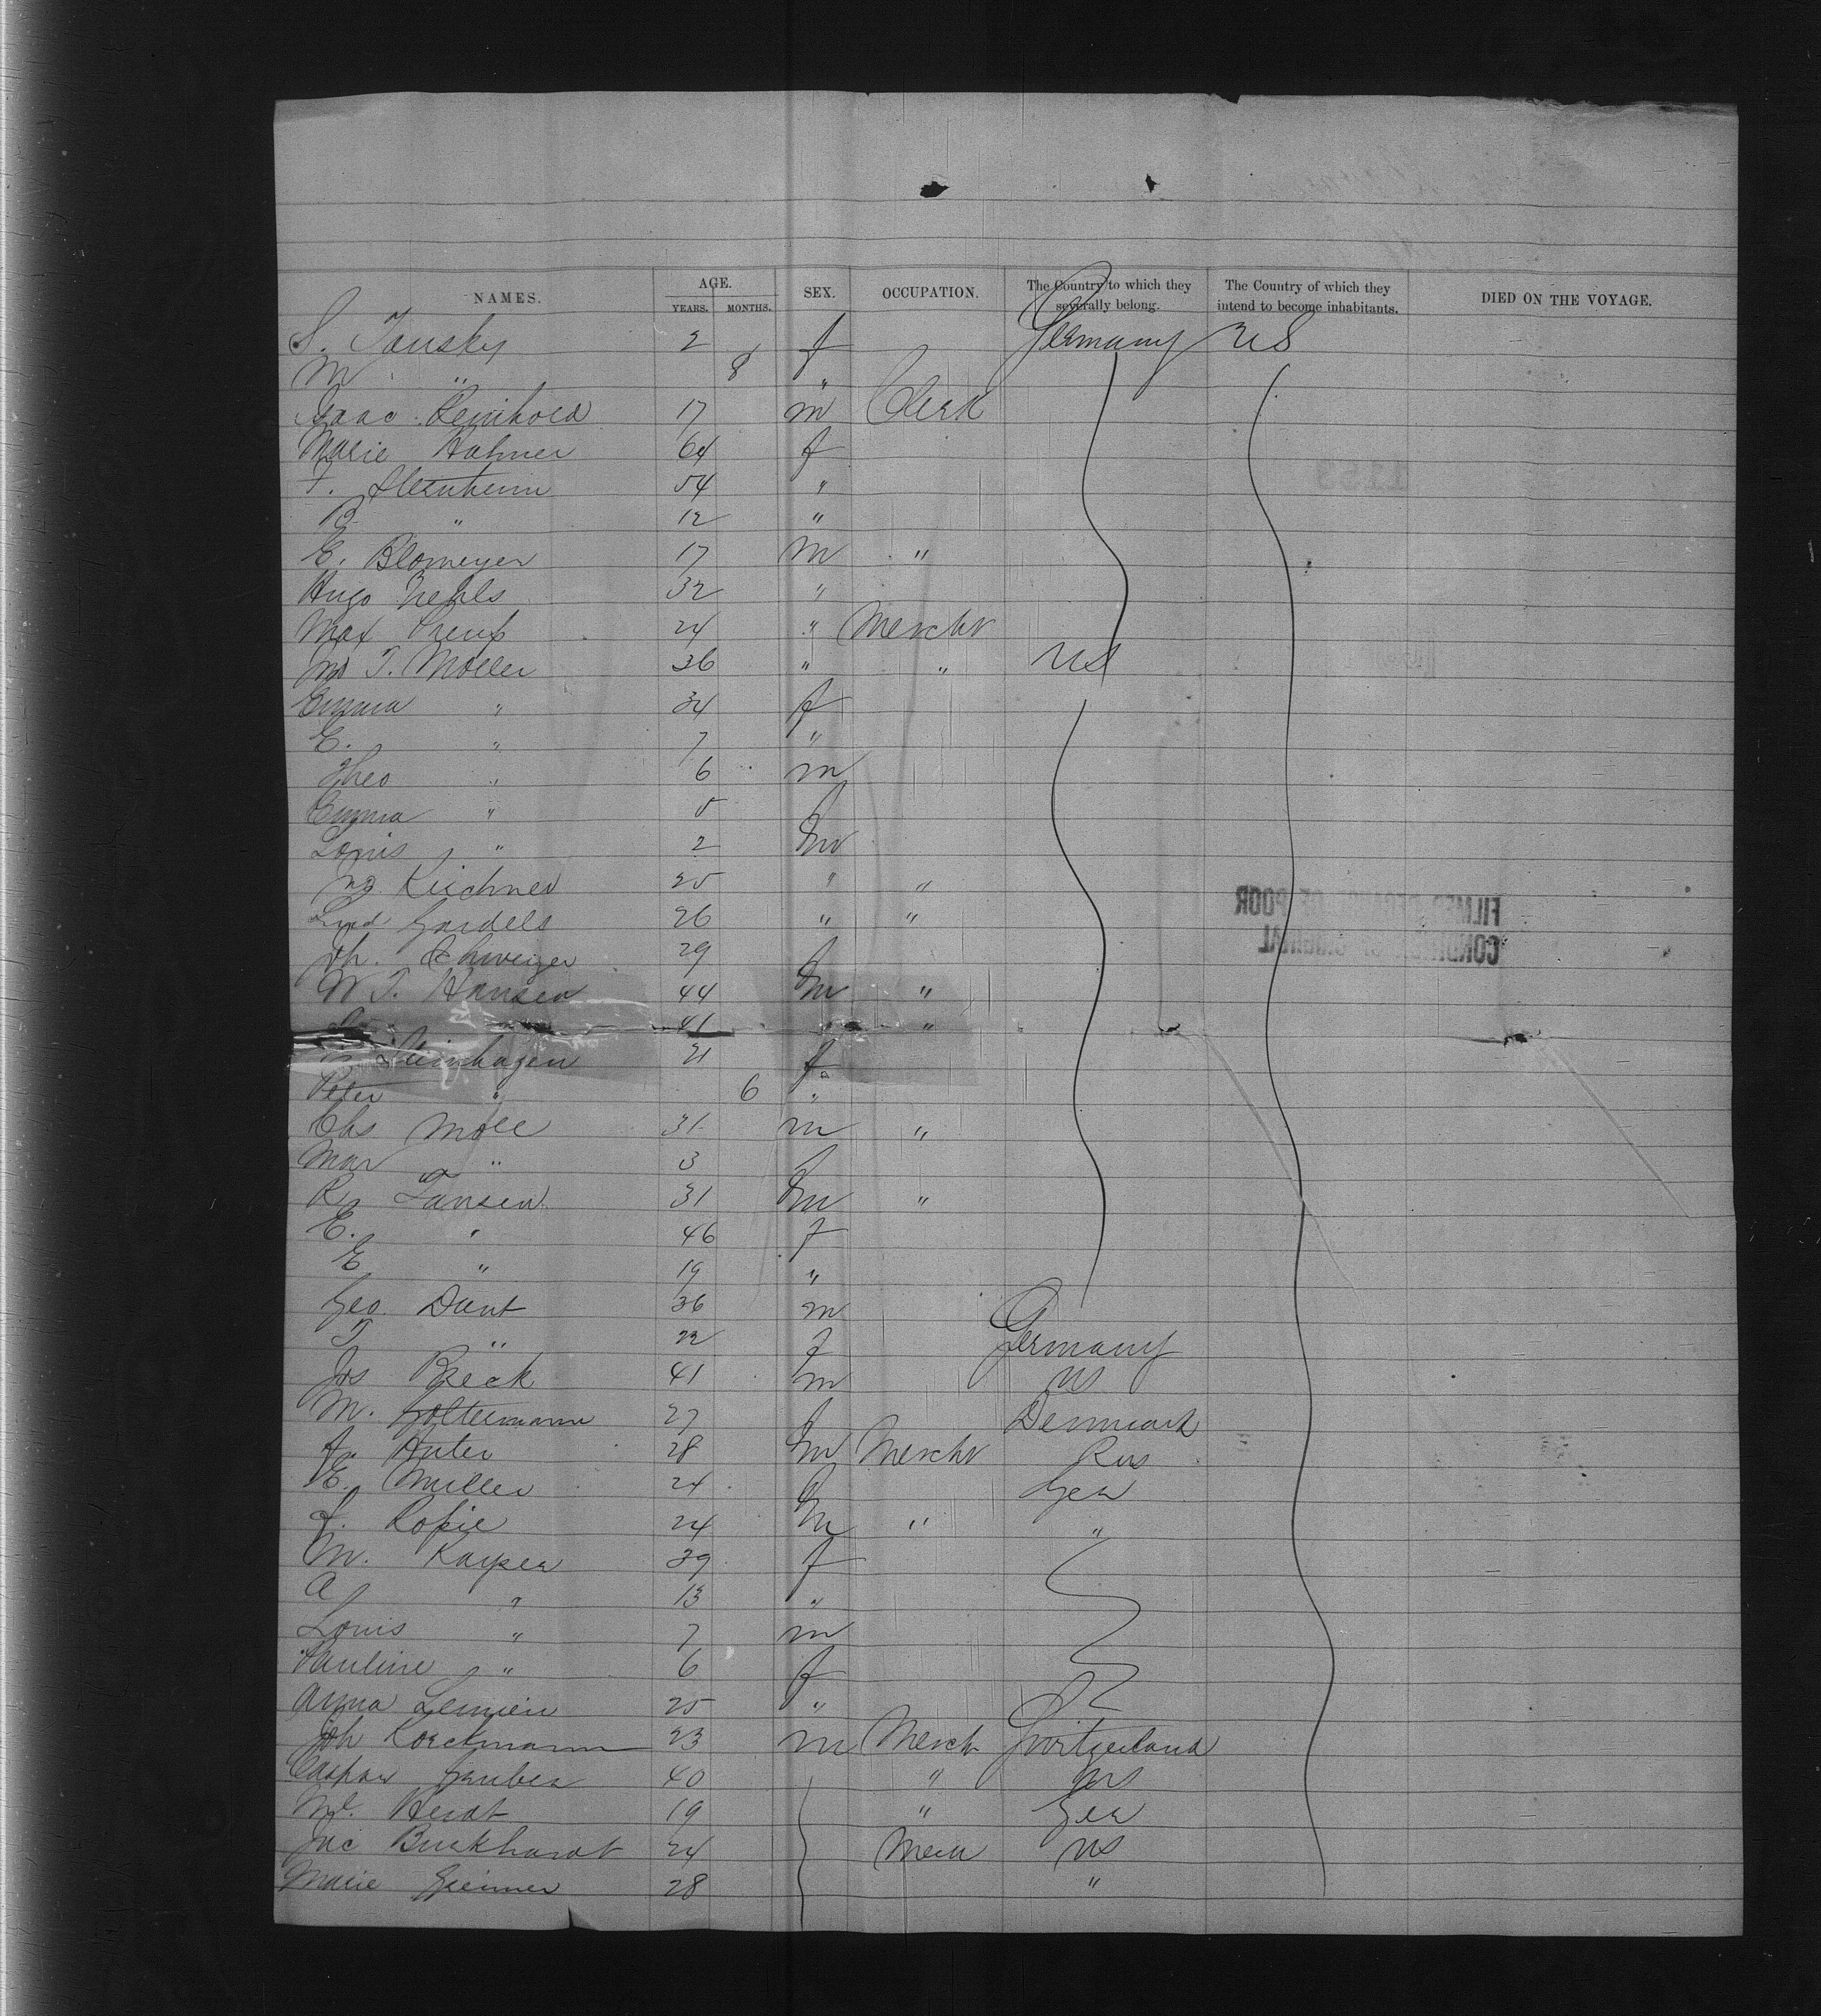 NAMES. AGE. SEX. OCCUPATION. The Country to which they severally belong. The Country of which they intend to become inhabitants. DIED ON THE VOYAGE.
YEARS. MONTHS.
S. Tansky 2 f Germany US
M " 8 "
Isaac Reinhold 17 m Clerk
Marie Hahner 64 f
F. Sternheim 54 "
B " 12 "
E. Blomeyer 17 m "
Hugo Nehls 32 "
Max 24 " Mercht
T. Moller 36 " " US
Emma " 34 f
E. " 7 "
Theo " 6 m
Emma " 5 f
Louis " 2 m
Kirchner 25 " "
Gardels 26 " "
Th. Schweizer 29 f
W T. Hansen 44 m "
41 " "
Steinhagen 21 f
Peter " 6 "
Chs Moll 31 m "
Mar " 3 f
R. Jansen 31 m "
E. " 46 f
E " 19 "
Geo. Dant 36 m
T " 22 f Germany
Jos Beck 41 m US
M. Goltermann 27 f Denmark
Huter 28 m Mercht Rus
E. Muller 24 f Ger
24 m " "
M. Kayser 39 f
A " 13 "
Louis " 7 m
Pauline " 6 f
Anna 25 "
Joh Korckmann 23 m Merch Switzerland
Caspar Gruber 40 " US
19 " Ger
Jac Burkhardt 24 US
Marie Greimer 28 "
1153
FILMED BECAUSE OF POOR
CONDITION OF ORIGINAL